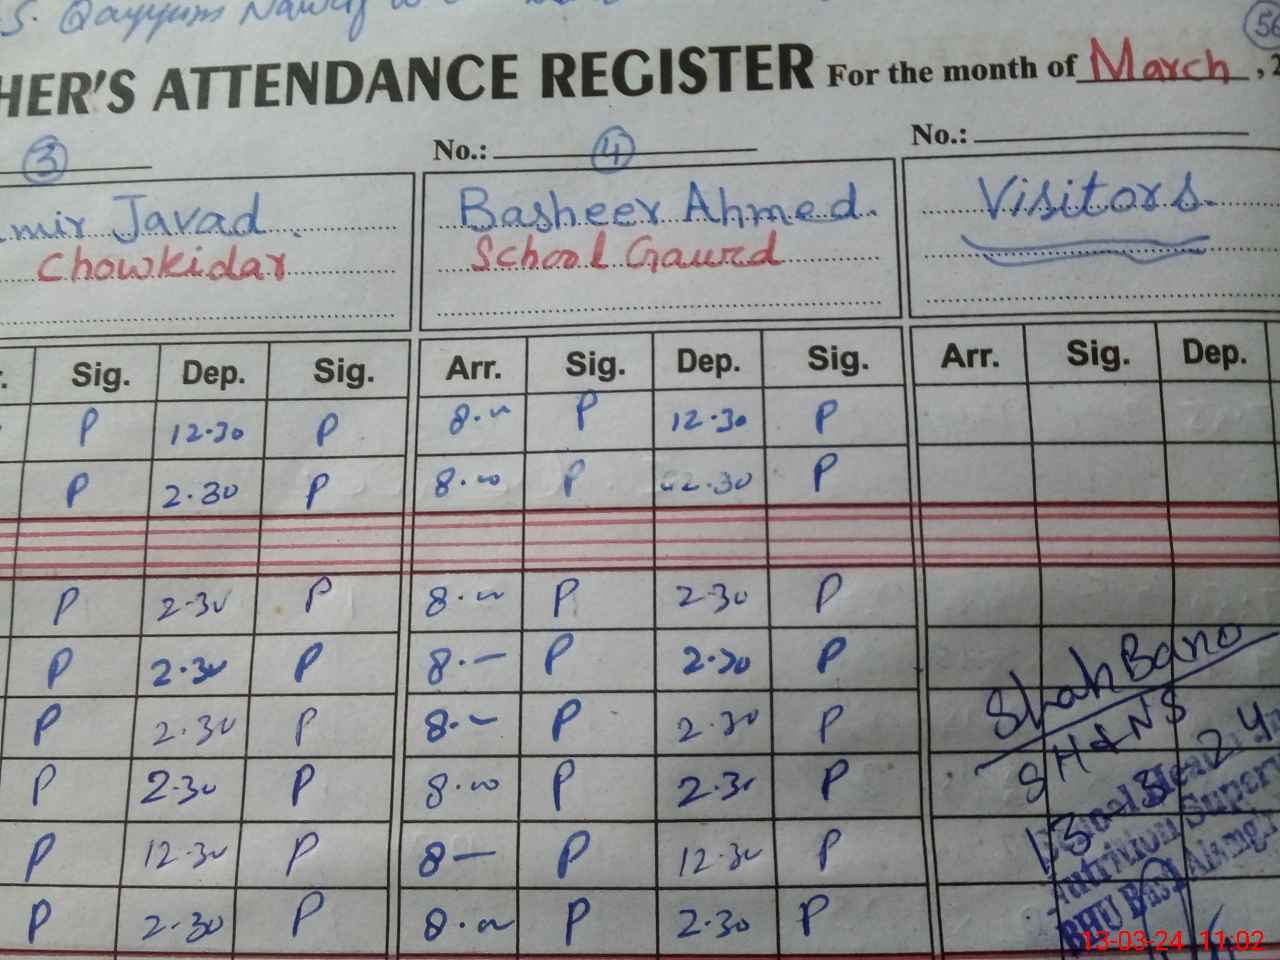 S. Qayyum Nawaz
56
HER'S ATTENDANCE REGISTER For the month of March, 2
3 No.: 4 No.:
mir Javad Basheer Ahmed. Visitors.
Chowkidar School Gaurd
Sig. Dep. Sig. Arr. Sig. Dep. Sig. Arr. Sig. Dep.
P 12.30 P 8.00 P 12.30 P
P 2.30 P 8.00 P 2.30 P
P 2.30 P 8.00 P 2.30 P
P 2.30 P 8.— P 2.30 P
P 2.30 P 8.— P 2.30 P
P 2.30 P 8.00 P 2.30 P
P 12.30 P 8— P 12.30 P
P 2.30 P 8.00 P 2.30 P
Shah Bano
SH&NS
13-3-24
School Health
Nutrition Super
BHU Basti
13-03-24 11:02